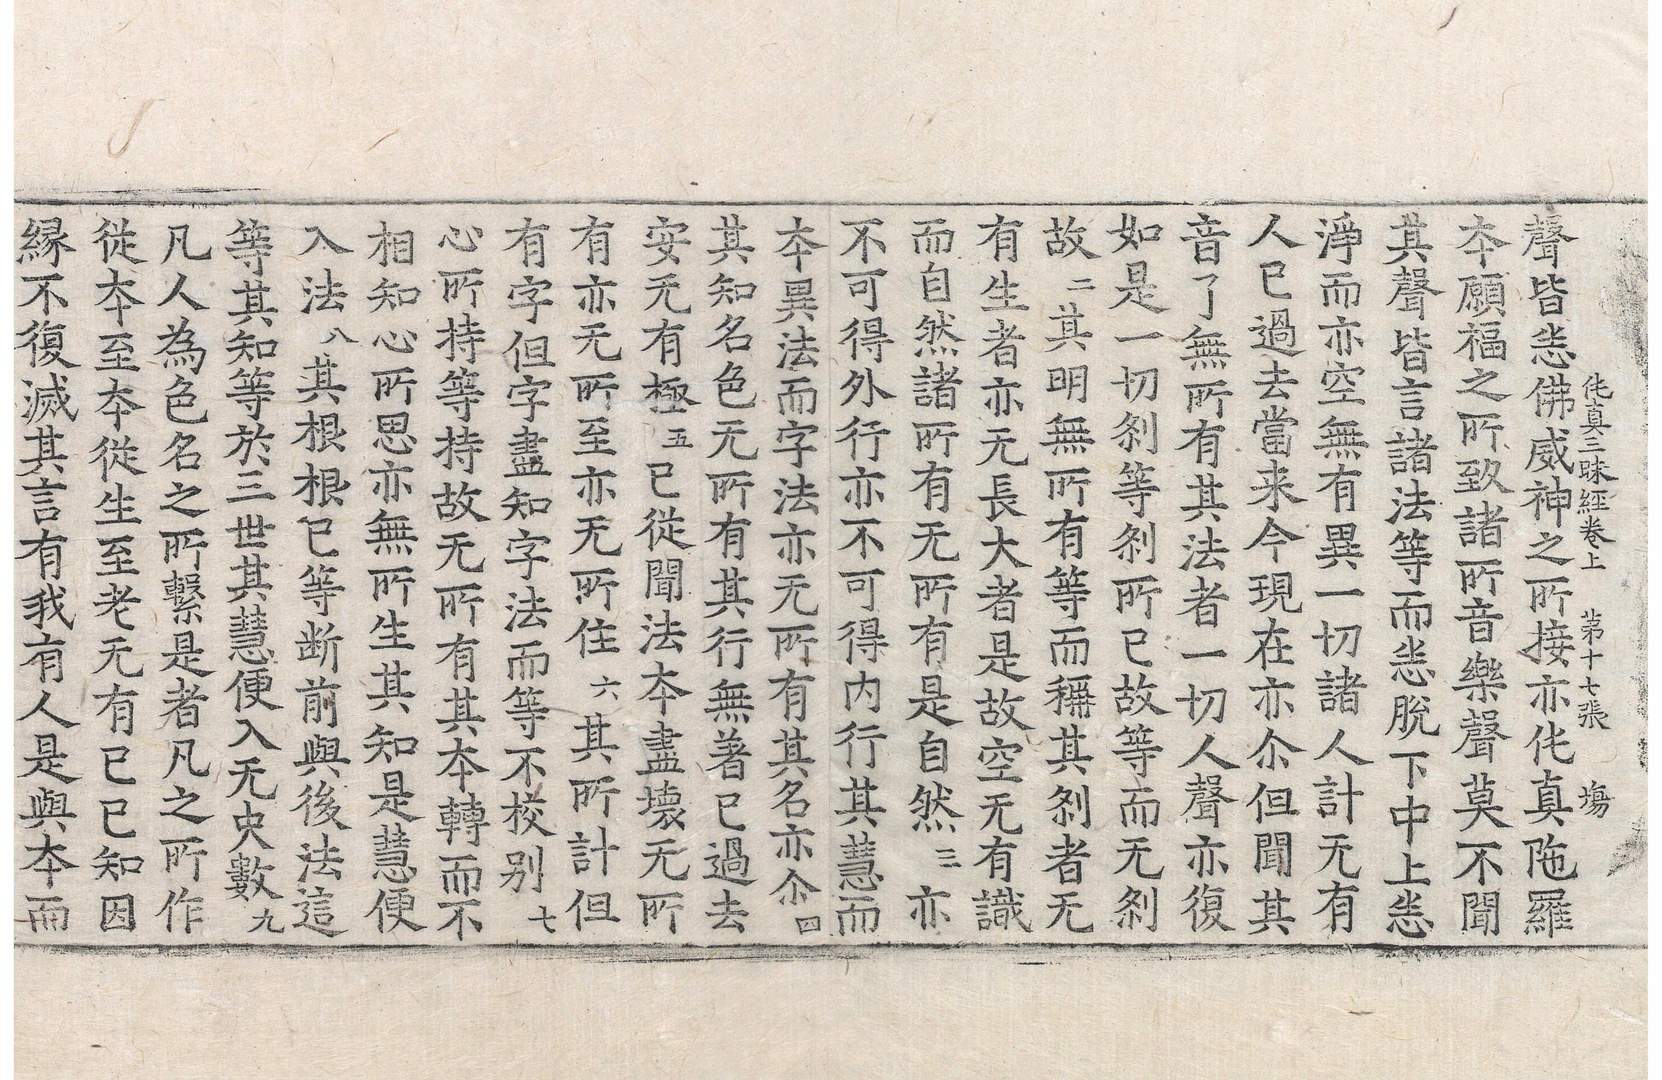 伅真三昧經卷上　第十七張　塲
聲皆悉佛威神之所接亦伅真陁羅
本願福之所致諸所音樂聲莫不聞
其聲皆言諸法等而悉脫下中上悉
淨而亦空無有異一切諸人計无有
人已過去當来今現在亦尒但聞其
音了無所有其法者一切人聲亦復
如是一切刹等刹所已故等而无刹
故二其明無所有等而稱其刹者无
有生者亦无長大者是故空无有識
而自然諸所有无所有是自然三亦
不可得外行亦不可得內行其慧而
本異法而字法亦无所有其名亦尒四
其知名色无所有其行無著已過去
安无有極五已從聞法本盡壞无所
有亦无所至亦无所住六其所計但
有字但字盡知字法而等不校別七
心所持等持故无所有其本轉而不
相知心所思亦無所生其知是慧便
入法八其根根已等断前與後法這
等其知等於三世其慧便入无央數九
凡人為色名之所繫是者凡之所作
從本至本從生至老无有已已知因
緣不復滅其言有我有人是與本而